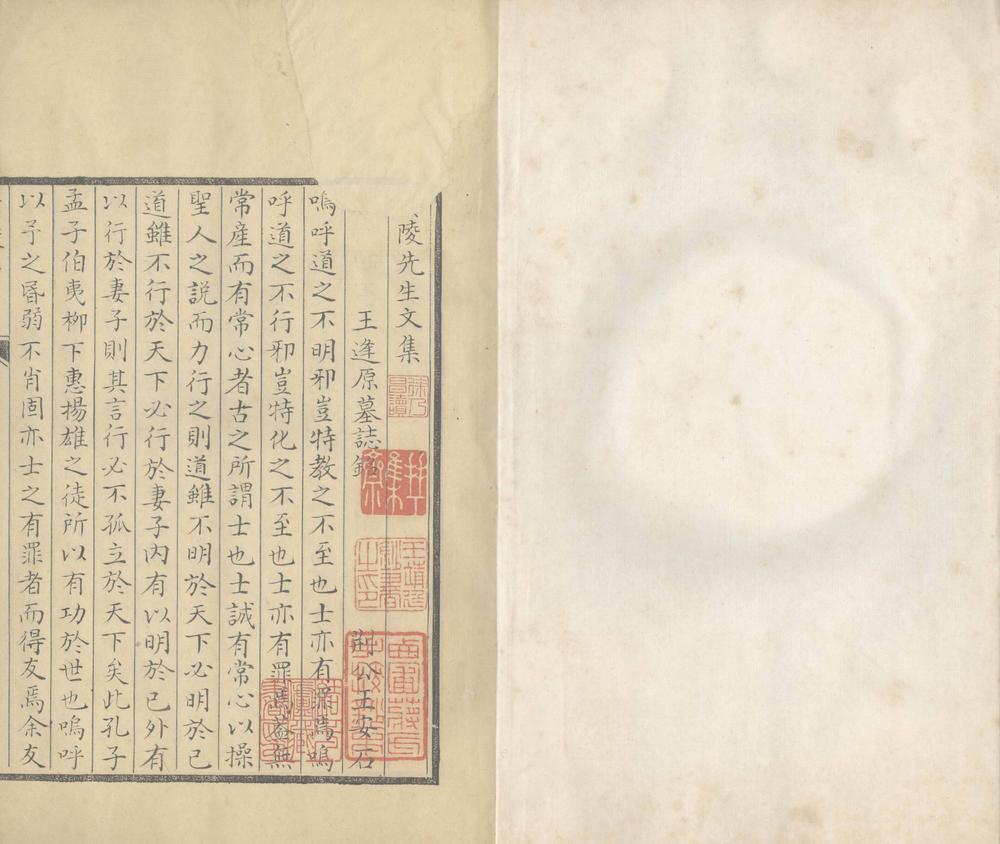 陵先生文集
王逢原墓誌銘 荆公王安石
嗚呼道之不明邪豈特教之不至也士亦有罪焉嗚
呼道之不行邪豈特化之不至也士亦有罪焉蓋無
常産而有常心者古之所謂士也士誠有常心以操
聖人之説而力行之則道雖不明於天下必明於己
道雖不行於天下必行於妻子内有以明於己外有
以行於妻子則其言行必不孤立於天下矣此孔子
孟子伯夷柳下惠揚雄之徒所以有功於世也嗚呼
以予之昏弱不肖固亦士之有罪者而得友焉余友